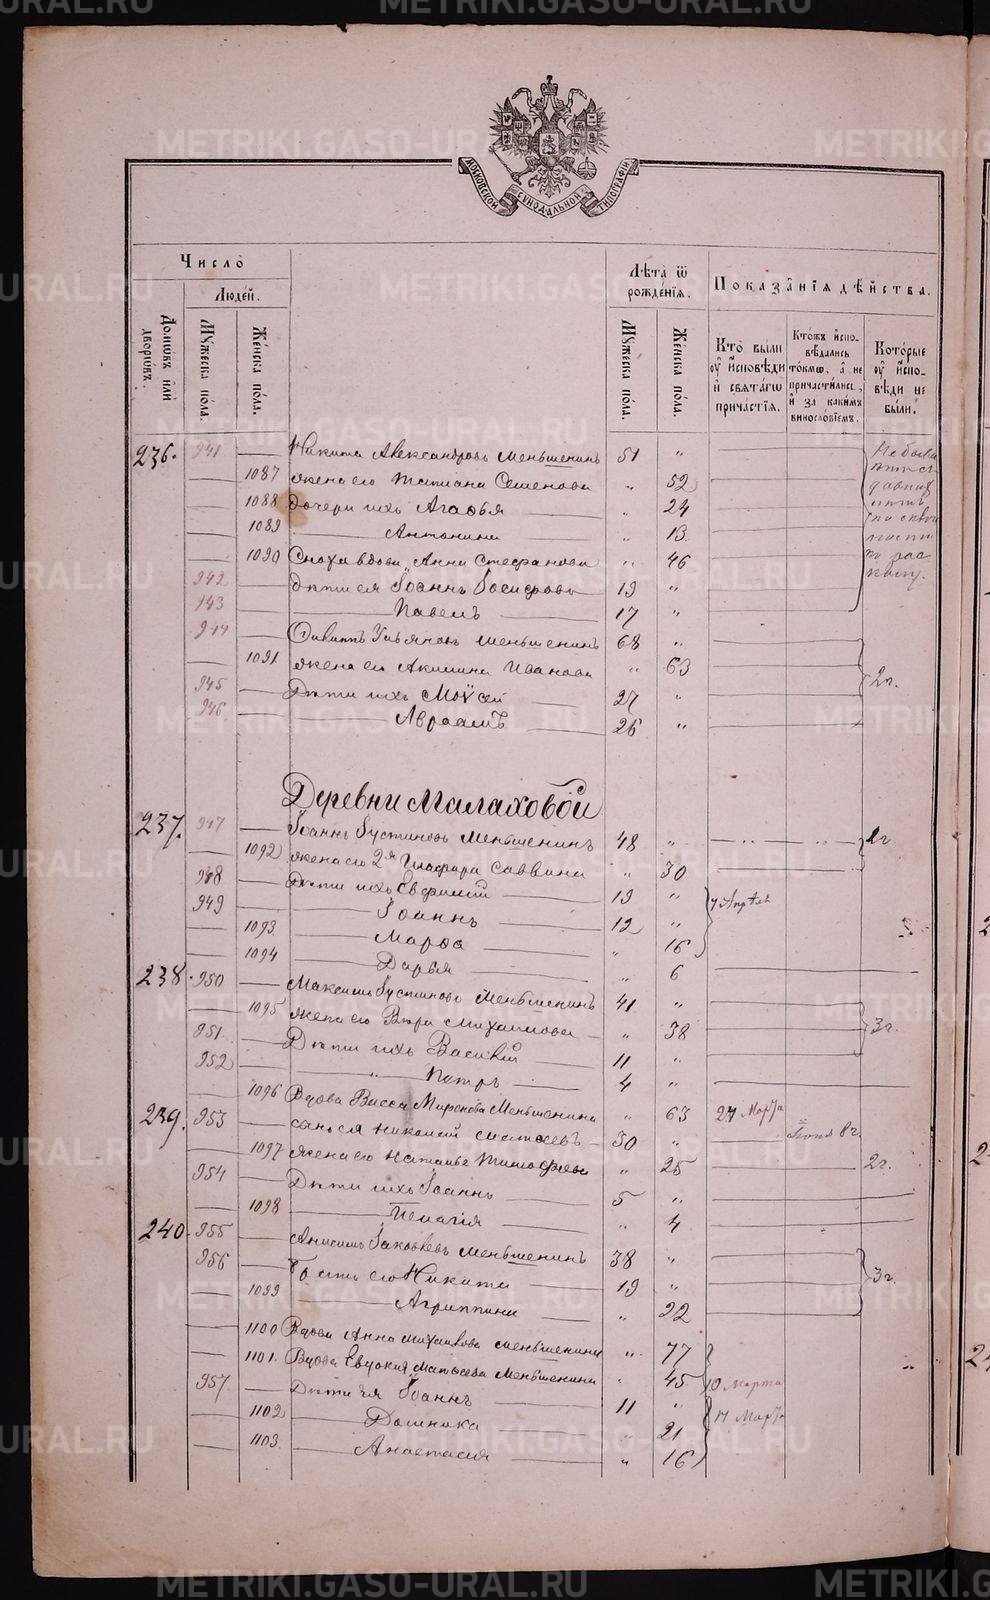 METRIKI.GASO-URAL.RU
МОСКОВСКОЙ СУНОДАЛЬНОЙ ТИПОГРАФІИ
Число
Людей.
Домѡвъ или дворѡвъ.
Мужеска пола.
Женска пола.
Лѣта ѿ рожденїѧ.
Мужеска пола.
Женска пола.
Показанїѧ дѣйства.
Кто были оу исповѣди и свѧтагѡ причастїѧ.
Ктожъ исповѣдались токмѡ, а не причастились, и за какимъ винословїемъ.
Которые оу исповѣди не были.
236. 941 — Никита Александровъ Меньшенинъ 51 "
1087 жена его Татиана Семенова " 52
1088 дочери ихъ Агаѳья " 24
1089 — Антонина " 13
1090 Сноха вдова Анна Стефанова " 46
942 — Дѣти ея Іоаннъ Іосифовъ 19 "
943 — Павелъ 17 "
944 — Ульяновъ Меньшенинъ 68 "
1091 жена его Акилина Иванова " 63
2г.
945 — Дѣти ихъ Моѵсей 27 "
946 — Авраамъ 26 "
Деревни Малаховой
237. 947 — Іоаннъ Іустиновъ Меньшенинъ 48 "
1092 жена его 2я Глафира Саввина " 30
948 — Дѣти ихъ Евфимій 19 "
7 Апрѣля
949 — Іоаннъ 12 "
1093 — Марѳа " 16
1094 — Дарья " 6
238 950 — Максимъ Іустиновъ Меньшенинъ 41 "
1095 жена его Вѣра Михаилова " 38
3г.
951 — Дѣти ихъ Василій 11 "
952 — " Петръ 4 "
1096 Вдова Васса Миронова Меньшенина " 63 27 Марта
239. 953 — сынъ ея Николай Матѳеевъ 30 " 8г.
1097 жена его Наталья Тимофеева " 25 2г.
954 — Дѣти ихъ Іоаннъ 5 "
1098 — Пелагія " 4
240. 955 — Анисимъ Іаковлевъ Меньшенинъ 38 "
956 — его Никита 19 "
3г.
1099 — Агриппина " 22
1100 Вдова Анна Михаилова Меньшенина " 77
1101. Вдова Евдокия Матѳеева Меньшенина " 45 10 Марта
957 — Дѣти ея Іоаннъ 11 "
17 Марта
1102 — Домника " 21
1103. — Анастасия " 16